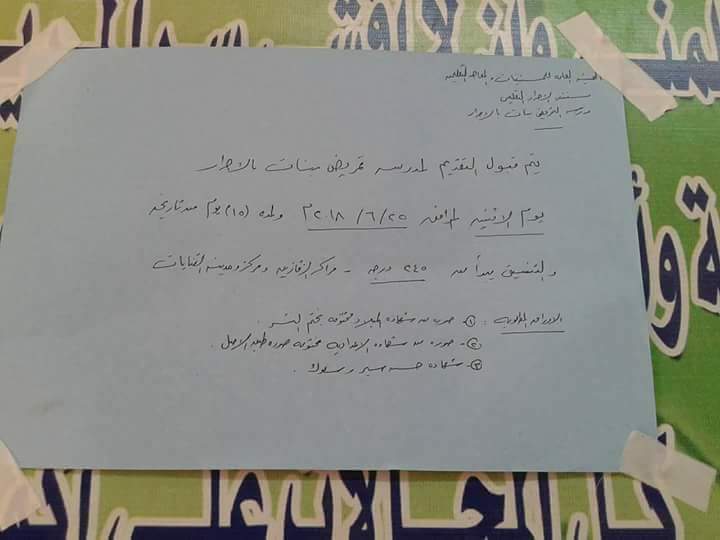 الهيئة العامة للمستشفيات والمعاهد التعليمية
مستشفى الاحرار التعليمى
مدرسة التمريض بنات بالاحرار
يتم قبول التقديم لمدرسة تمريض بنات بالاحرار
يوم الاثنين الموافق ٢٥/٦/٢٠١٨م ولمدة (١٥) يوم من تاريخه
والتنسيق يبدأ من ٢٤٥ درجه - مراكز الزقازيق ومركز ومدينة القنايات
الاوراق المطلوبه : ١- صوره من شهادة الميلاد مختومه بختم النسر .
٢- صورة من شهادة الاعداديه مختومه صوره طبق الاصل .
٣- شهادة حسن سير وسلوك .